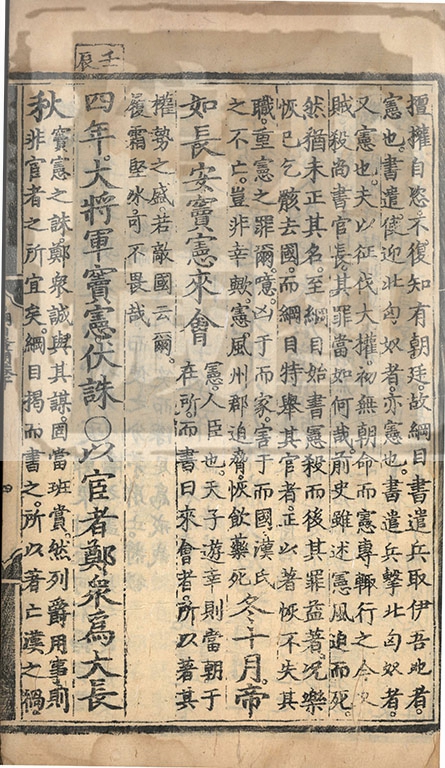 擅權自恣不復知有朝廷故綱目書遣兵取伊吾地者
憲也書遣使迎北匈奴者亦憲也書遣兵擊北匈奴者
又憲也夫以征伐大權初無朝命而憲專輒行之今又
賊殺尚書官長其罪當如何哉前史雖述憲風迫而死
然猶未正其名至綱目始書憲殺而後其罪益著况樂
恢已乞骸去國而綱目特舉其官者正以著恢不失其
職重憲之罪爾憲凶于而家害于而國漢氏
之不亡豈非幸歟憲風州郡迫脅恢飲藥死冬十月帝
如長安竇憲來會
憲人臣也天子遊幸則當朝于
在所而書曰來會者所以著其
權勢之盛若敵國云爾
履霜堅冰可不畏哉
壬辰
四年大將軍竇憲伏誅○以宦者鄭衆爲大長
秋
竇憲之誅鄭衆誠與其謀固當班賞然列爵用事則
非宦者之所宜矣綱目揭而書之所以著亡漢之禍
四